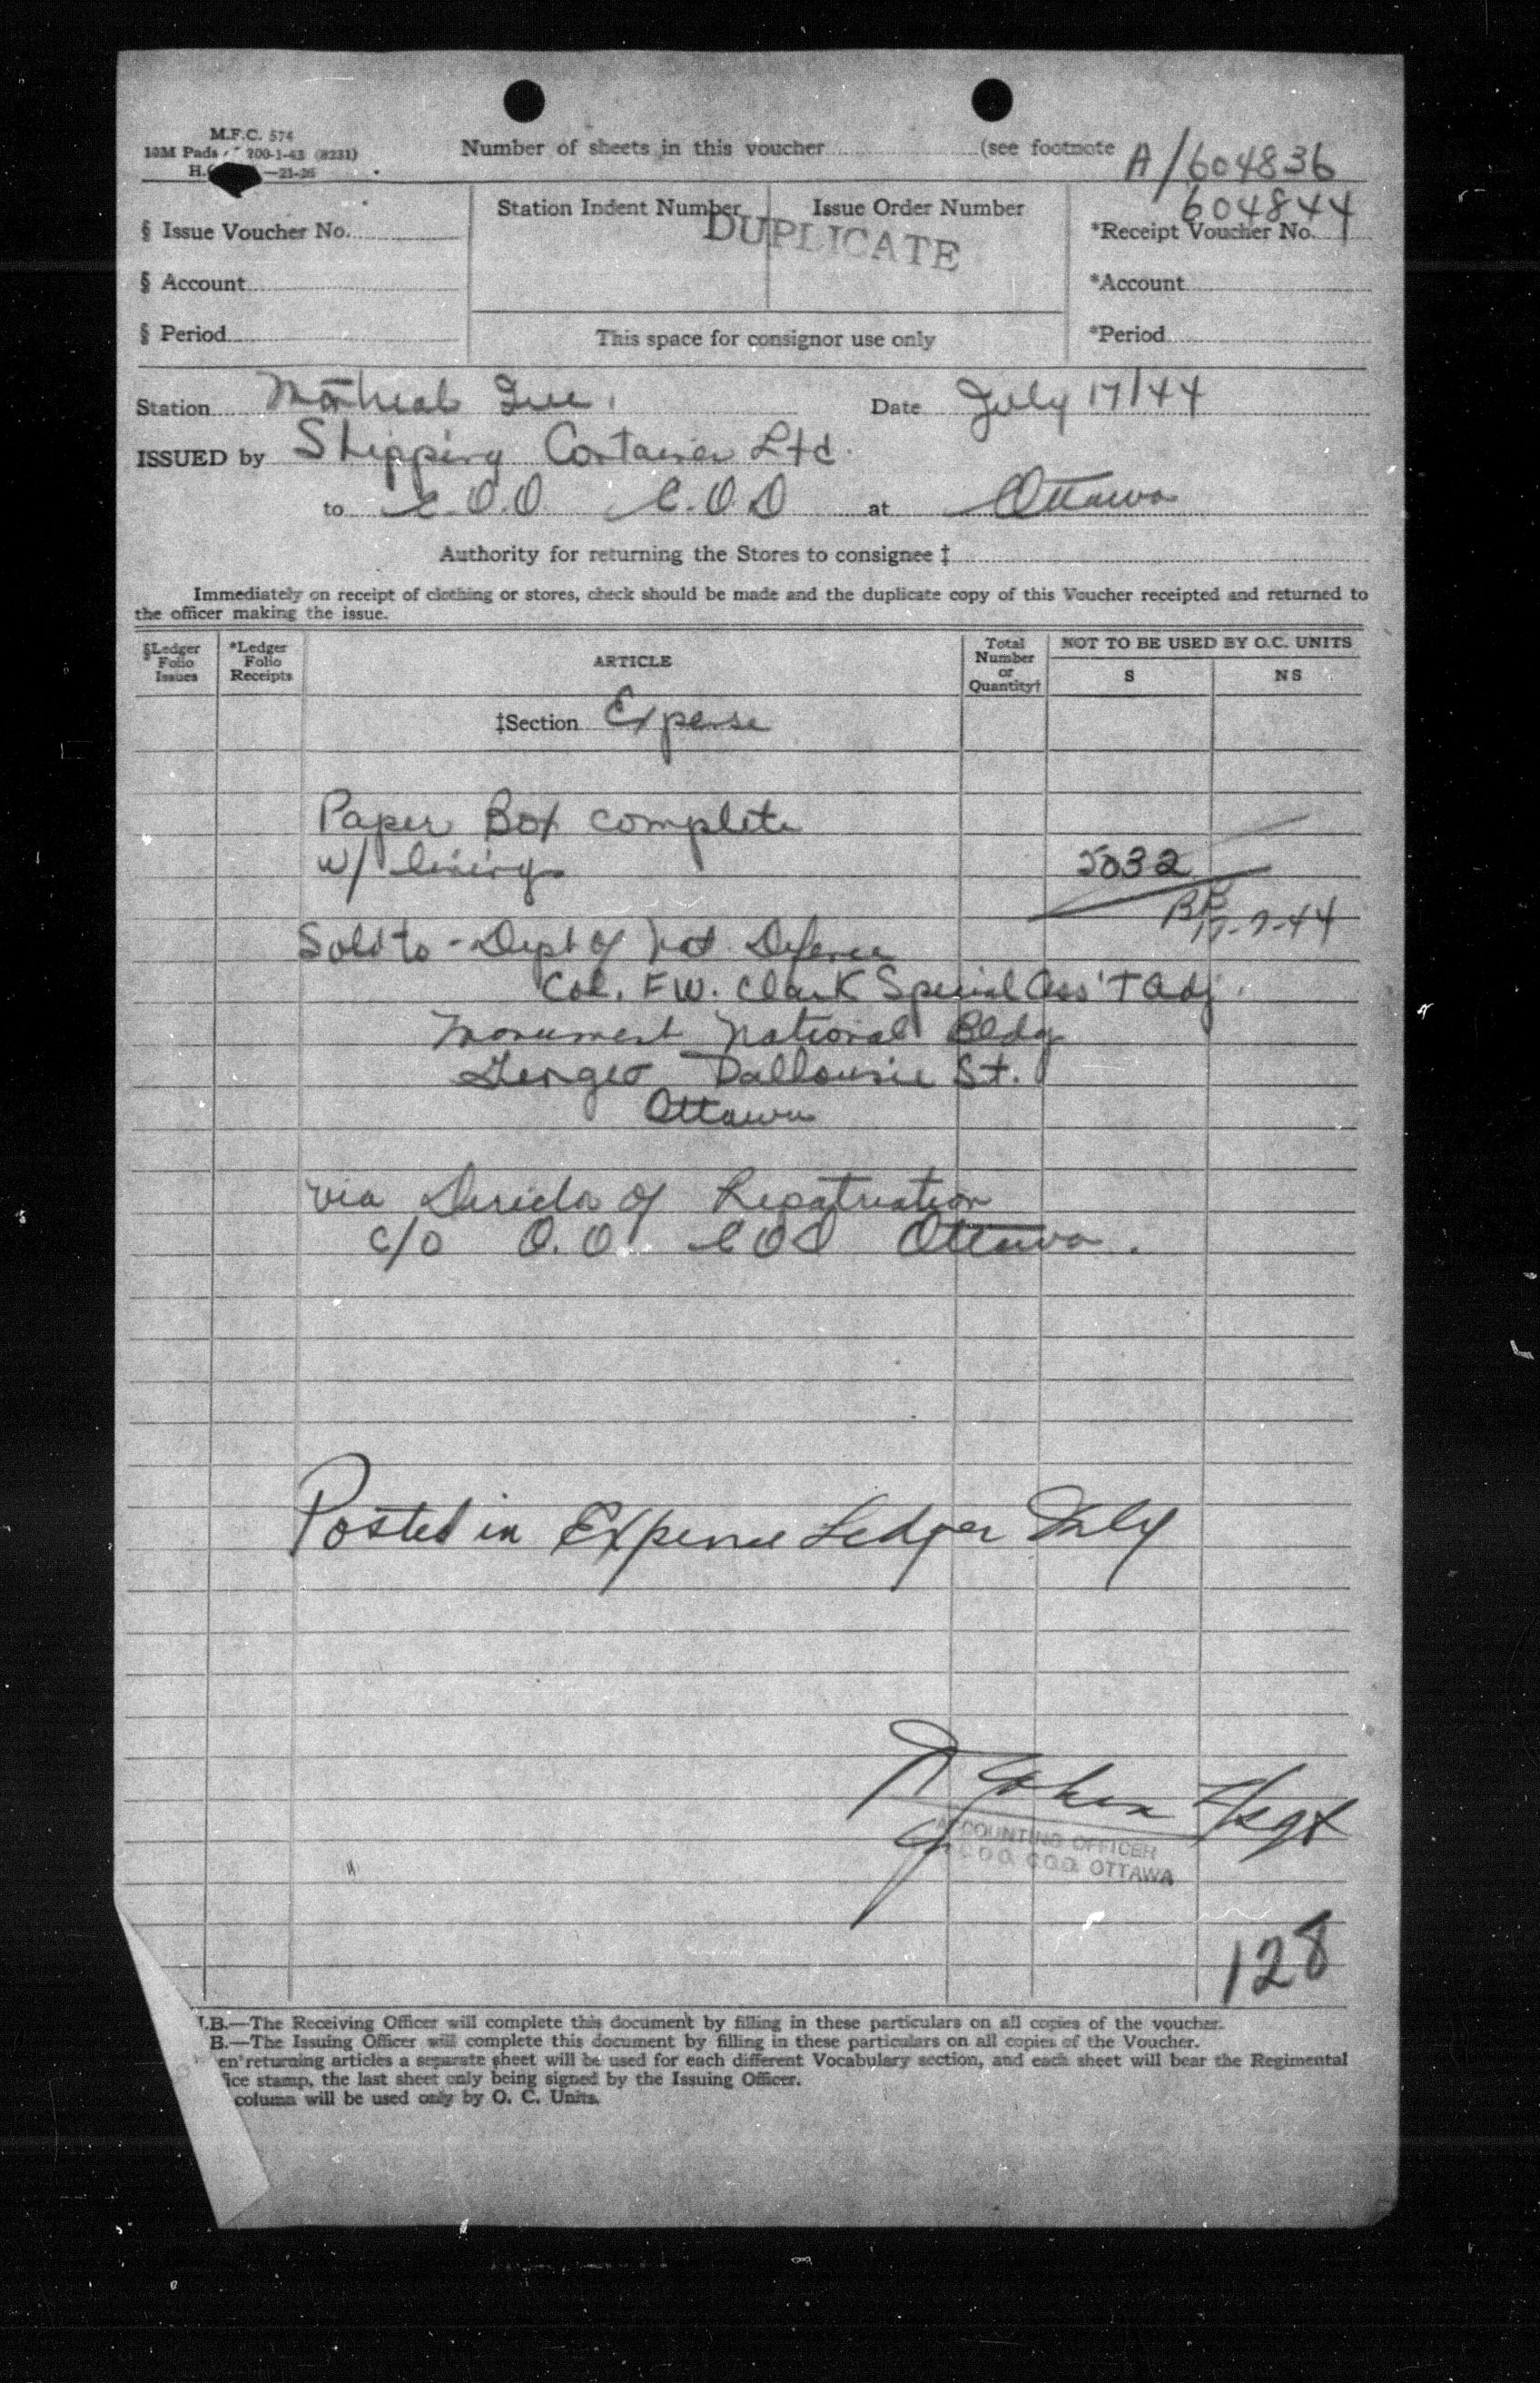 M.F.C. 574
10M Pads 200-1-43 (8231)
H. —21-26
Number of sheets in this voucher (see footnote
A/604836
604844
§ Issue Voucher No.
Station Indent Number
Issue Order Number
*Receipt Voucher No.
DUPLICATE
§ Account
*Account
§ Period
This space for consignor use only
*Period
Station Montreal Que. Date July 17/44
ISSUED by Shipping Container Ltd.
to C.O.O. C.O.D at Ottawa
Authority for returning the Stores to consignee ‡
Immediately on receipt of clothing or stores, check should be made and the duplicate copy of this Voucher receipted and returned to
the officer making the issue.
§Ledger Folio Issues
*Ledger Folio Receipts
ARTICLE
Total Number or Quantity†
NOT TO BE USED BY O.C. UNITS
S
NS
‡Section Expense
Paper Box complete
w/ linings 5032
17-7-44
Sold to - Dept of Nat Defence
Col. F.W. Clark Special Ass'T Adj.
Monument National Bldg
Dalhousie St.
Ottawa
via Director of Repatriation
c/o O.O. COD Ottawa.
Posted in Expense Ledger Only
ACCOUNTING OFFICER
C.O.O. C.O.D. OTTAWA
128
.B.—The Receiving Officer will complete this document by filling in these particulars on all copies of the voucher.
B.—The Issuing Officer will complete this document by filling in these particulars on all copies of the Voucher.
en returning articles a separate sheet will be used for each different Vocabulary section, and each sheet will bear the Regimental
ice stamp, the last sheet only being signed by the Issuing Officer.
column will be used only by O. C. Units.